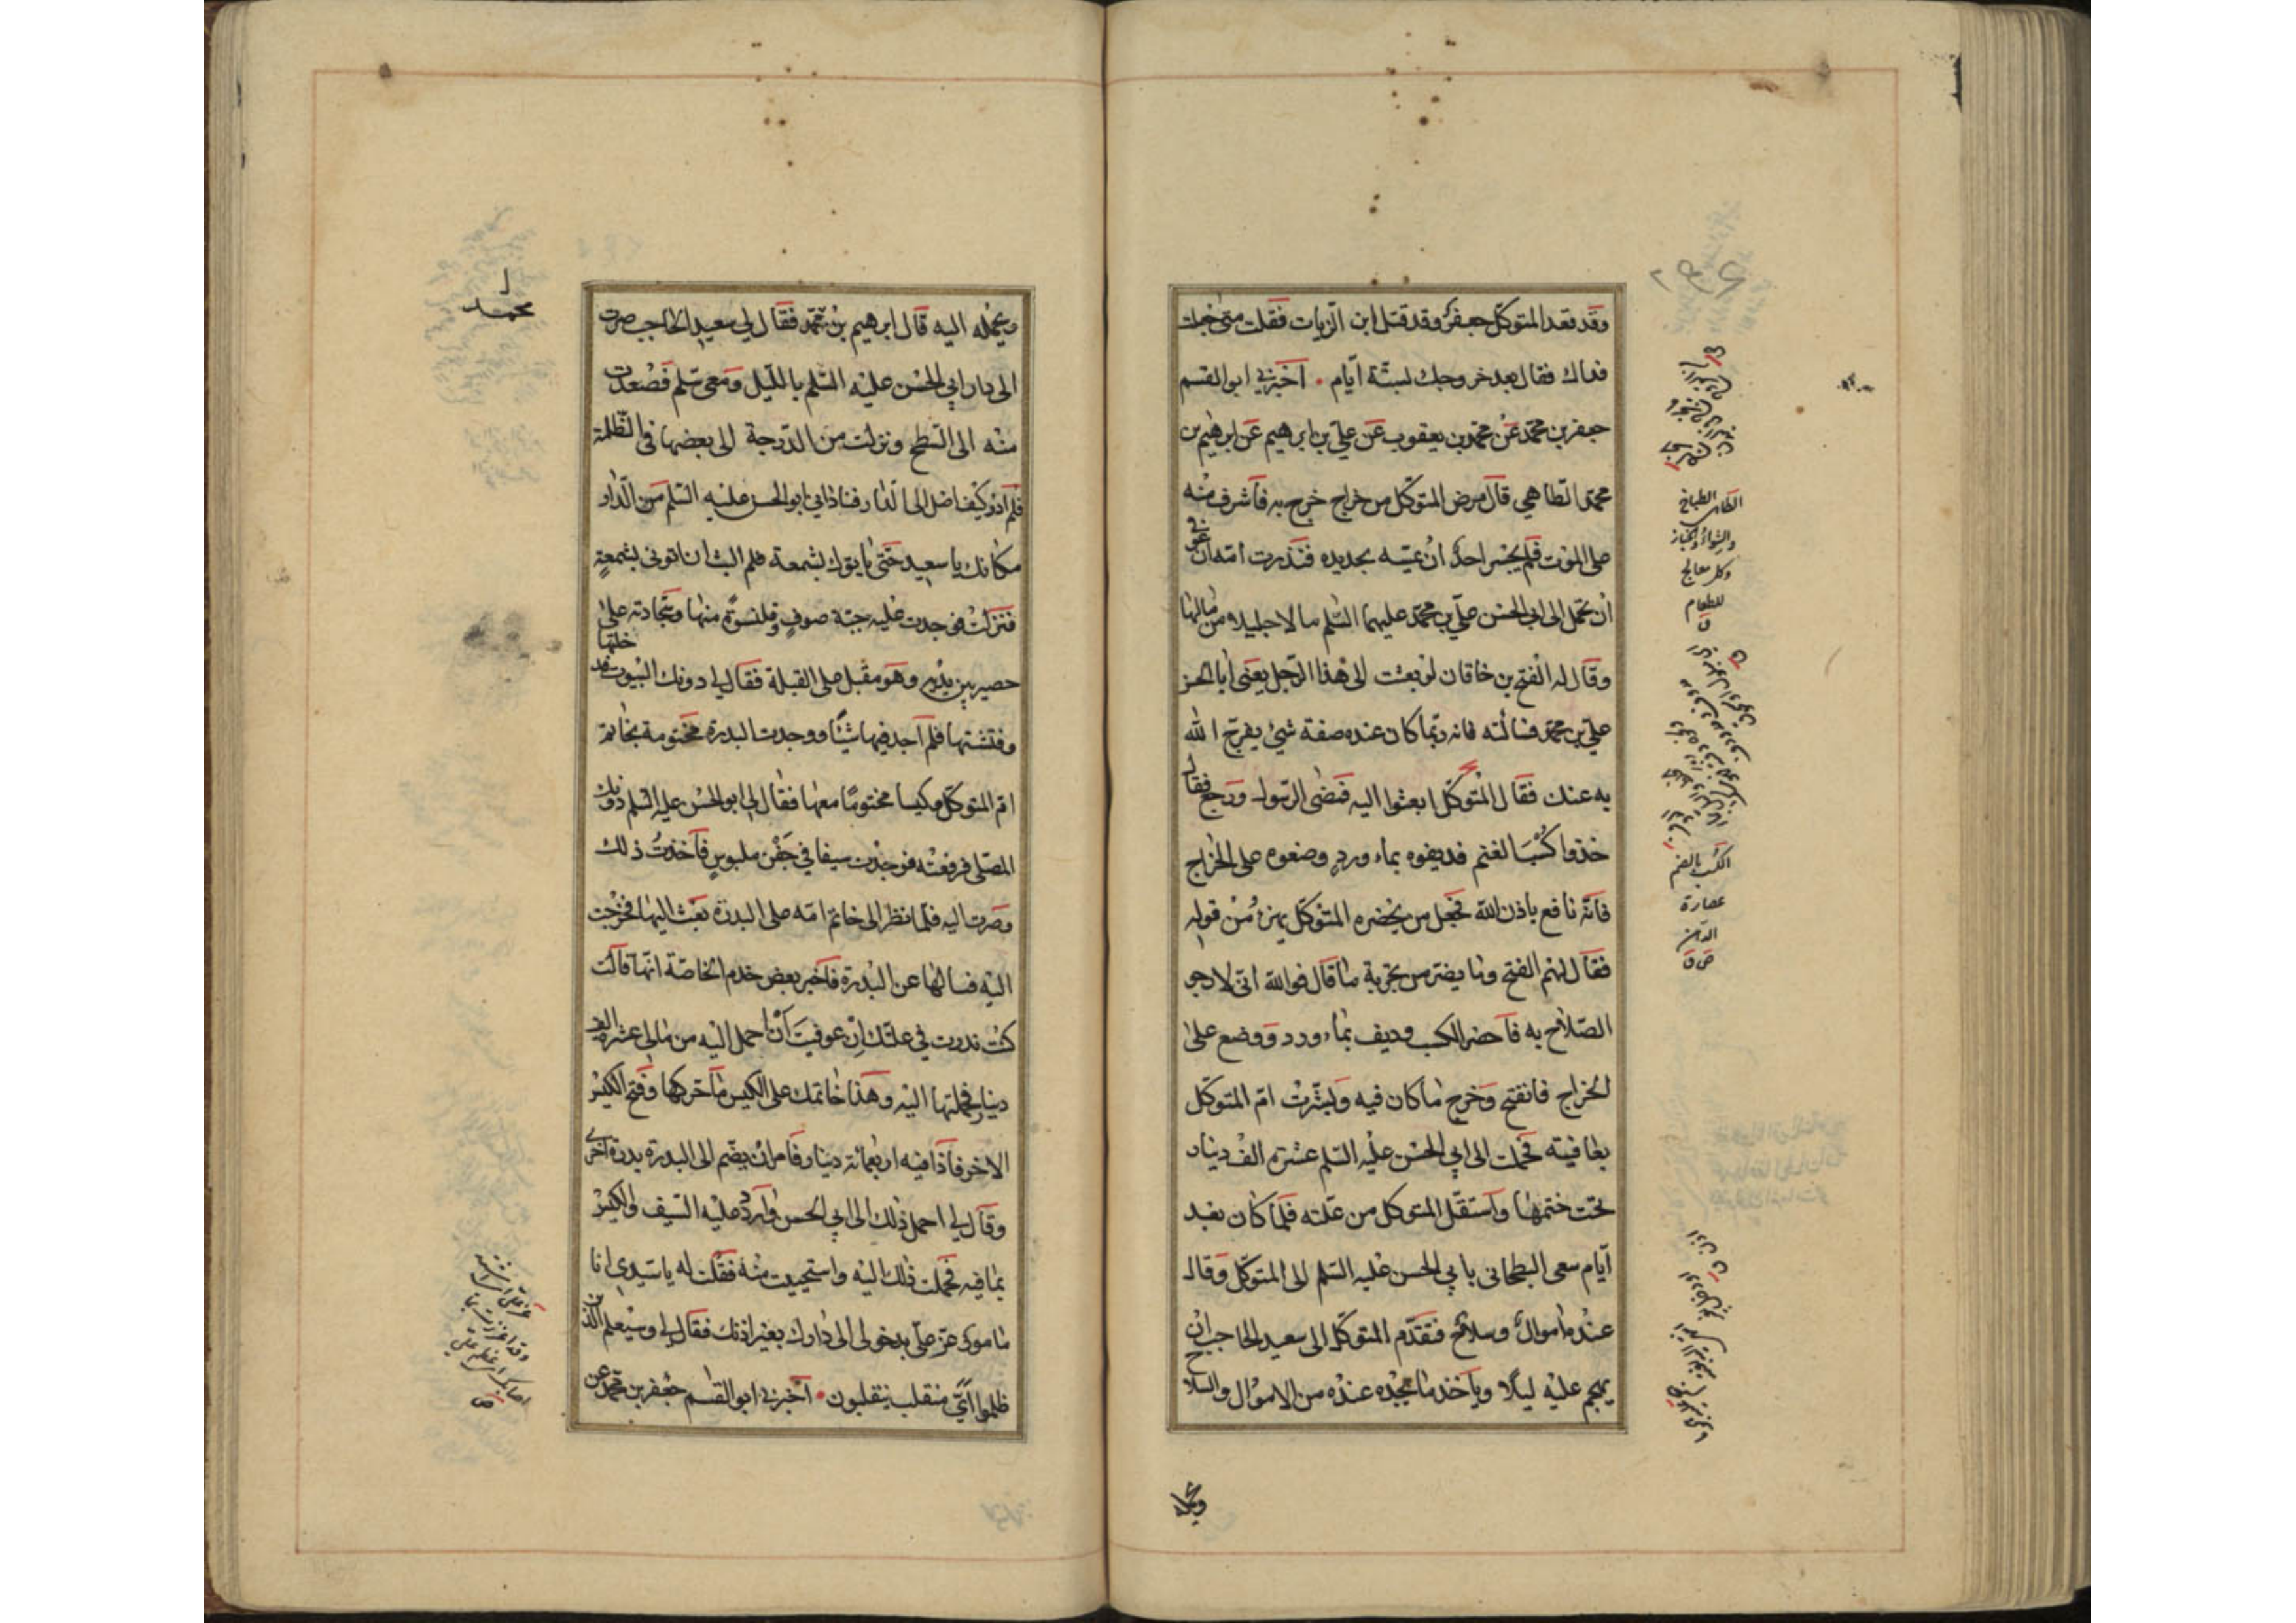 وقد قعد المتوكل جعفر وقد قتل ابن الزيات فقلت متى جعلت
فداك فقال بعد خروجك لستة أيام ٠ اخبرني ابو القسم
جعفر بن محمد عن محمد بن يعقوب عن علي بن ابراهيم عن ابرهيم بن
محمد الطاهي قال مرض المتوكل من خراج خرج به فاشرف منه
على الموت فلم يجسر احد ان يمسه بحديدة فنذرت امه ان عوفي
ان تحمل الى ابي الحسن علي بن محمد عليهما السلم مالا جليلا من مالها
وقال له الفتح بن خاقان لو بعثت الى هذا الرجل يعني ابا الحسن
علي بن محمد فسألته فانه ربما كان عنده صفة شيء يفرج الله
به عنك فقال المتوكل ابعثوا اليه فمضى الرسول ورجع فقال
خذوا كسب الغنم فديفوه بماء ورد وضعوه على الخراج
فانه نافع باذن الله فجعل من يحضره المتوكل يهزء من قوله
فقال لهم الفتح وما يضر من تجربة ما قال فوالله اني لارجو
الصلاح به فاحضر الكسب وديف بماء ورد ووضع على
الخراج فانفتح وخرج ما كان فيه وبشرت ام المتوكل
بعافيته فحملت الى ابي الحسن عليه السلم عشرة الف دينار
تحت ختمها واستقل المتوكل من علته فلما كان بعد
ايام سعى البطحاني بابي الحسن عليه السلم الى المتوكل وقال
عنده اموال وسلاح فتقدم المتوكل الى سعيد الحاجب ان
يهجم عليه ليلا ويأخذ ما يجده عنده من الاموال والسلاح
الطاهي الطباخ
والشواء والخباز
وكل معالج
للطعام
ق
الكسب بالضم
عصارة
الدهن
ص ق
محمد
ويحمله اليه قال ابرهيم بن محمد فقال لي سعيد الحاجب صرت
الى دار ابي الحسن عليه السلم بالليل ومعي سلم فصعدت
منه الى السطح ونزلت من الدرجة الى بعضها في الظلمة
فلم ادر كيف اصل الى الدار فناداني ابو الحسن عليه السلم من الدار
مكانك يا سعيد حتى يأتوك بشمعة فلم البث ان اتوني بشمعة
فنزلت فوجدت عليه جبة صوف وقلنسوة منها وسجادته على
حصير بين يديه وهو مقبل على القبلة فقال لي دونك البيوت فدخلتها
وفتشتها فلم اجد فيها شيئا ووجدت البدرة مختومة بخاتم
ام المتوكل وكيسا مختوما معها فقال لي ابو الحسن عليه السلم دونك
المصلى فرفعته فوجدت سيفا في جفن ملبوس فاخذت ذلك
وصرت اليه فلما نظر الى خاتم امه على البدرة بعث اليها فخرجت
اليه فسالها عن البدرة فاخبر بعض خدم الخاصة انها قالت
كنت نذرت في علتك ان عوفيت ان احمل اليه من مالي عشرة الف
دينار فحملتها اليه وهذا خاتمك على الكيس ما حركها وفتح الكيس
الاخر فاذا فيه اربعمائة دينار فامر ان يضم الى البدرة بدرة اخرى
وقال لي احمل ذلك الى ابي الحسن واردد عليه السيف والكيس
بما فيه فحملت ذلك اليه واستحييت منه فقلت له يا سيدي انا
مامور عز علي بدخولي الى دارك بغير اذنك فقال لي وسيعلم الذين
ظلموا اي منقلب ينقلبون ٠ اخبرني ابو القاسم جعفر بن محمد عن